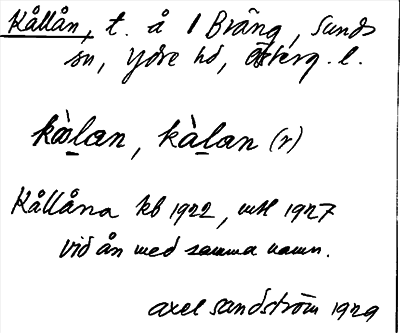 Kållån, t. å / Bräng, Sunds
sn, Ydre hd, Österg. l.
kòlan, kàlan (r)
Kållåna kb 1922, mtl 1927
vid ån med samma namn.
Axel Sandström 1929